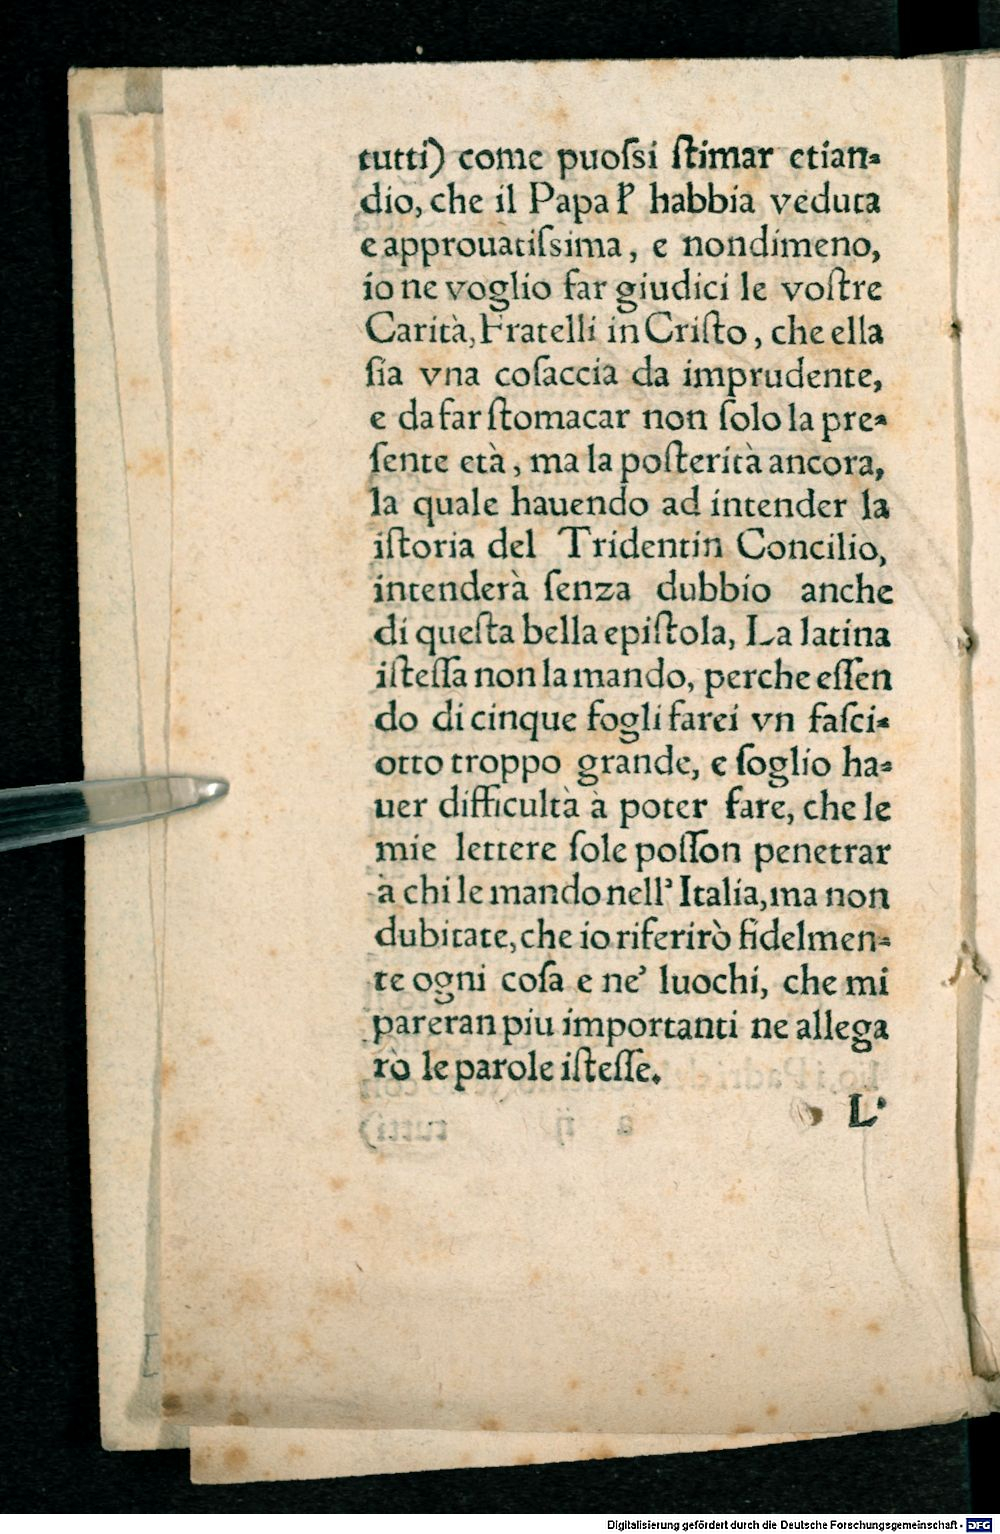 tutti) come puoſsi ſtimar etian-
dio, che il Papa l' habbia veduta
e approuatiſsima, e nondimeno,
io ne voglio far giudici le voſtre
Carità, Fratelli in Criſto, che ella
ſia vna coſaccia da imprudente,
e da far ſtomacar non ſolo la pre-
ſente età, ma la poſterità ancora,
la quale hauendo ad intender la
iſtoria del Tridentin Concilio,
intenderà ſenza dubbio anche
di queſta bella epiſtola, La latina
iſteſſa non la mando, perche eſſen
do di cinque fogli farei vn faſci-
otto troppo grande, e ſoglio ha-
uer difficultà à poter fare, che le
mie lettere ſole poſſon penetrar
à chi le mando nell' Italia, ma non
dubitate, che io riferirò fidelmen-
te ogni coſa e ne' luochi, che mi
pareran piu importanti ne allega
rò le parole iſteſſe.
L'
Digitalisierung gefördert durch die Deutsche Forschungsgemeinschaft - DFG